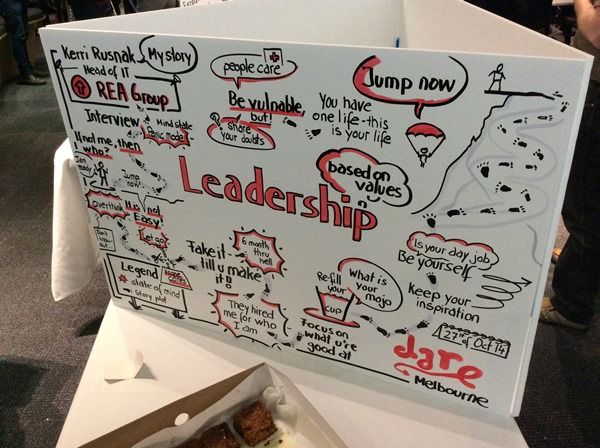 Kerri Rusnak
Head of IT
REA Group
My story
Interview
Mind state
Panic mode
If not me, then
who?
I'm
ready
Jump
now!
overthink
It is not
Easy!
Let go
Don't
Legend
state of mind
: Story plot
people care
Be vulnerable,
but!
share
your doubts
You have
one life - this
is your life
Jump now
based on
values
Leadership
Fake it
till u make
it!
6 month
thru
hell
They hired
me for who
I am
Re-fill
your
cup
What is
your
mojo
Focus on
what u're
good at
Is your day job
Be yourself
Keep your
inspiration
27th of Oct 14
dare
Melbourne